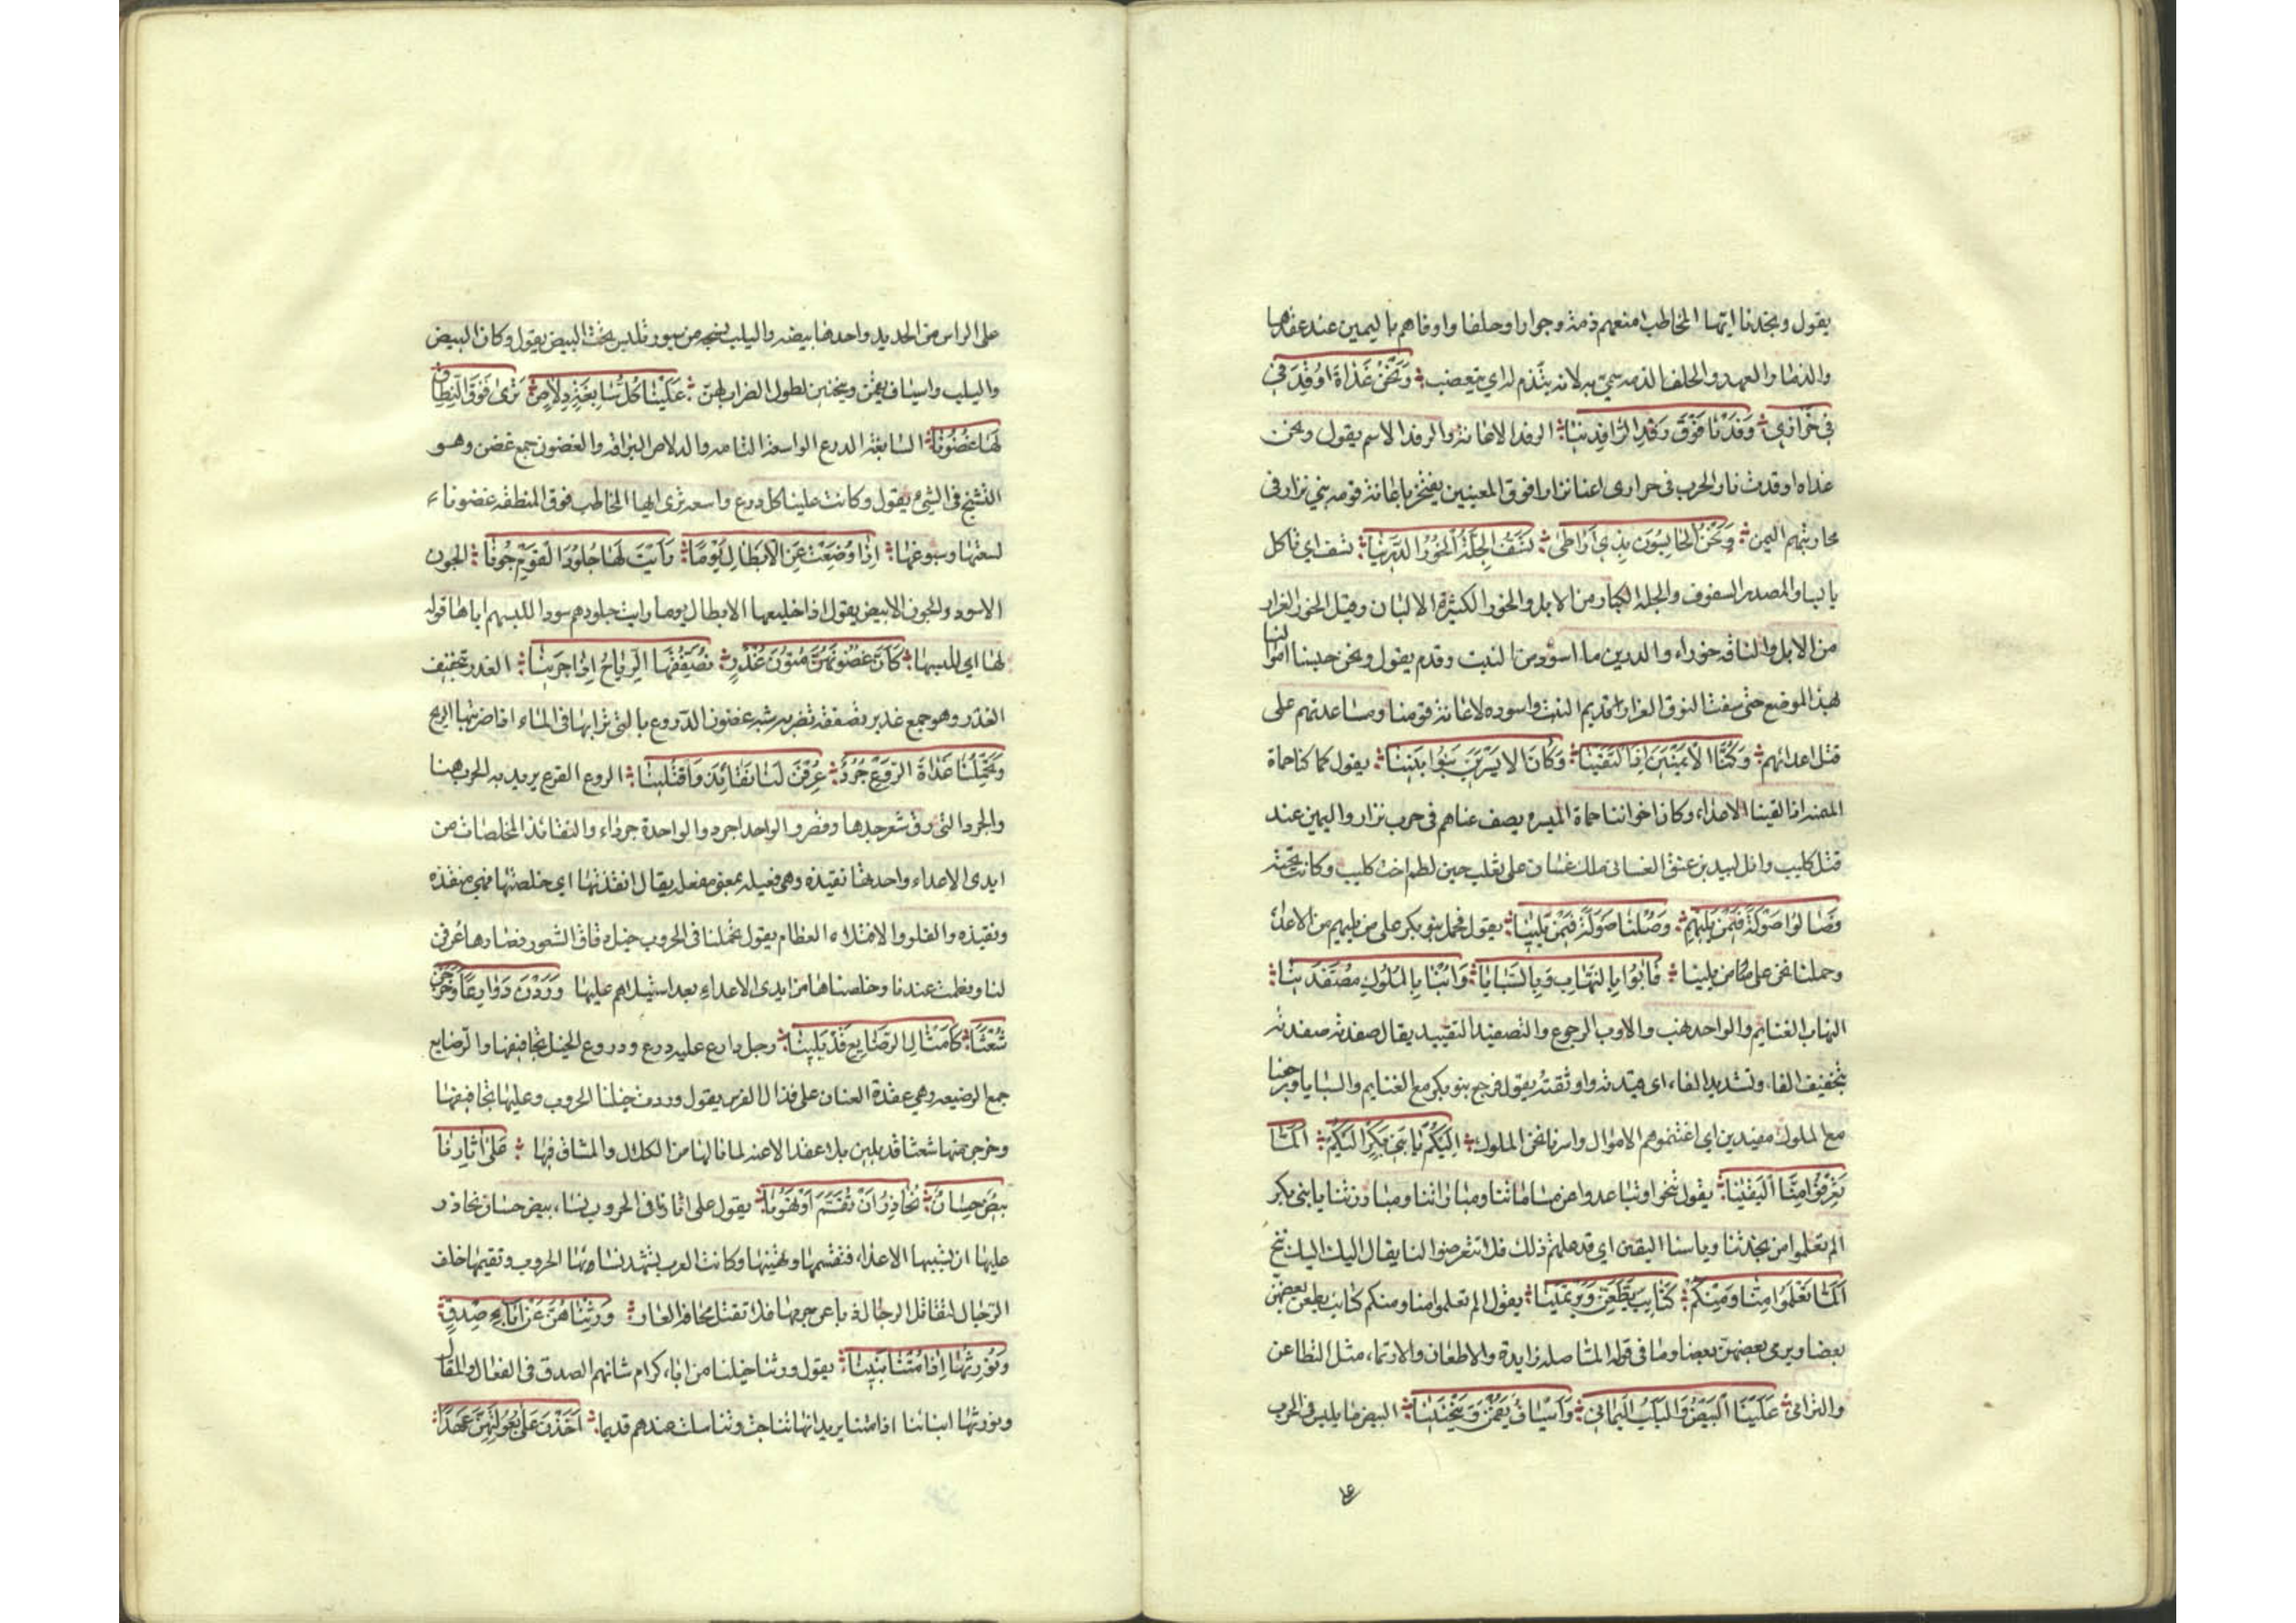 يقول وتجدنا ايها المخاطب امنعهم ذمة وجوارا وحلفا واوفاهم باليمين عند عقدها
والذمار العهد والحلف الذمه سمي به لانه يتذمر له اي يتغضب وَنَحْنُ غَدَاةَ اُوقِدَ في
في خَزَازي وَفَدْنَا فَوْقَ رَفْدِ الرَّافِدِينَا الرفد الاعانة والرفد الاسم يقول ونحن
غداه اوقدت نار الحرب في خزازى اعنا نزارا فوق المعينين يفتخر باعانة قومه بني نزار في
محاربتهم اليمن وَنَحْنُ الحَابِسُونَ بِذِي اَرَاطى تَسَفُّ الجِلَّةُ الخُورُ الدَّرِينَا تسف اي تاكل
يابسا والمصدر السفوف والجلة الكبار من الابل والخور الكثيرة الالبان وقيل الخور الغزار
من الابل والناقه خوراء والدرين ما اسود من النبت وقدم يقول ونحن حبسنا اموالنا
بهذا الموضع حتى سفت النوق الغزار قديم النبت واسوده لاعانة قومنا ومساعدتهم على
قتل اعدائهم وَكُنَّا الاَيْمَنِينَ اِذَا التَقَيْنَا وَكَانَ الاَيْسَرِينَ بَنُوا اَبِينَا يقول كنا حماة
الميمنه اذا لقينا الاعداء وكان اخواننا حماة الميسره يصف عناهم في حرب نزار واليمن عند
قتل كليب وائل لبيد بن عنق الغساني ملك غسان على تغلب حين لطم اخت كليب وكانت تحته
فَصَالُوا صَوْلَةً فِيمَنْ يَلِيهِمْ وَصُلْنَا صَوْلَةً فِيمَنْ يَلِينَا يقول فحمل بنو بكر على من يليهم من الاعداء
وحملنا نحن على من يلينا فَآبُوا بِالنِّهَابِ وَبِالسَّبَايَا وَاُبْنَا بِالمُلُوكِ مُصَفَّدِينَا
النهاب الغنايم والواحد نهب والاوب الرجوع والتصفيد التقييد يقال صفدته صفدته
بتخفيف الفاء وتشديد الفاء اي قيدته واوثقته يقول فرجع بنو بكر مع الغنايم والسبايا ورجعنا
مع الملوك مقيدين اي اغتنموهم الاموال واسرنا نحن الملوك اِلَيْكُمْ يَا بَنِي بَكْرٍ اِلَيْكُمْ اَلَمَّا
تَعْرِفُوا مِنَّا اليَقِينَا يقول تنحوا وتباعدوا عن مساماتنا ومباراتنا يا بني بكر
الم تعلموا من نجدتنا وباسنا اليقين اي قد علمتم ذلك فلا تتعرضوا لنا يقال اليك اليك تنح
اَلَمَّا تَعْلَمُوا مِنَّا وَمِنْكُمْ كَتَايِبَ يَطَّعِنَّ وَيَرْتَمِينَا يقول الم تعلموا منا ومنكم كتايب يطعن بعضهن
بعضا ويرمي بعضهن بعضا وما في قوله الما صله زايدة والاطعان والارتماء مثل التطاعن
والترامى عَلَيْنَا البَيْضُ وَاليَلَبُ اليَمَانِي وَاَسْيَافٌ يَقُمْنَ وَيَنْحَنِينَا البيض ما يلبس في الحرب
على الراس من الحديد واحدها بيضه واليلب نسيجه من سيور تلبس تحت البيض يقول وكان البيض
واليلب واسياف يقمن وينحنين لطول الضراب بهن عَلَيْنَا كُلُّ سَابِغَةٍ دِلاَصٍ تَرَى فَوْقَ النِّطَاقِ
لَهَا غُضُونَا السابغه الدرع الواسعة التامه والدلاص البراقه والغضون جمع غضن وهو
التشنج في الشيء يقول وكانت علينا كل درع واسعه ترى ايها المخاطب فوق المنطقه غضونا
لسعتها وسبوغها اِذَا وُضِعَتْ عَنِ الاَبْطَالِ يَوْمًا رَاَيْتَ لَهَا جُلُودَ القَوْمِ جُونَا الجون
الاسود والجون الابيض يقول اذا خلعها الابطال يوما رايت جلودهم سودا للبسهم اياها قوله
لها اي للبسها كَاَنَّ غُضُونَهُنَّ مُتُونُ غُدْرٍ تُصَفِّقُهَا الرِّيَاحُ اِذَا جَرَيْنَا الغدر تخفيف
الغدر وهو جمع غدير تصفقه تضربه شبه غضون الدروع بالتي تراها في الماء اذا ضربتها الريح
وَتَحْمِلُنَا غَدَاةَ الرَّوْعِ جُرْدٌ عُرِفْنَ لَنَا نَقَائِذَ وَافْتُلِينَا الروع الفزع يريد به الحرب هنا
والجرد التي رق شعر جلدها وقصر والواحد اجرد والواحدة جرداء والنقائذ المخلصات من
ايدي الاعداء واحدتها نقيذة وهي فعيله بمعنى مفعله يقال انقذتها اي خلصتها فهي منقذه
ونقيذه والفلو والافتلاء العظام يقول تحملنا في الحروب خيل رقاق الشعور قصارها عرفن
لنا وفطمت عندنا وخلصناها من ايدي الاعداء بعد استيلائهم عليها وَرَدْنَ دَوَارِعًا وَخَرَجْنَ
شُعْثًا كَاَمْثَالِ الرَّصَايِعِ قَدْ بَلِينَا رجل دارع عليه درع ودروع الخيل تجافيفها والرصايع
جمع الرصيعه وهي عقدة العنان على قذال الفرس يقول وردت خيلنا الحروب وعليها تجافيفها
وخرجن منها شعثا قد بلين بلى عقد الاعنه لما نالها من الكلال والمشاق فيها عَلَى آثَارِنَا
بِيضٌ حِسَانٌ نُحَاذِرُ اَنْ تُقَسَّمَ اَوْ تَهُونَا يقول على اثارنا في الحروب نساء بيض حسان نحاذر
عليها ان يسبيها الاعداء فتقسمها وتهينها وكانت العرب تشهد نساءها الحروب وتقيمها خلف
الرجال ليقاتل الرجال ذبا عن حرمها فلا تفشل مخافة العار وَرِثْنَاهُنَّ عَنْ آبَاءِ صِدْقٍ
وَنُورِثُهَا اِذَا مُتْنَا بَنِينَا يقول ورثنا خيلنا من اباء كرام شانهم الصدق في الفعال والمقال
ونورثها ابناءنا اذا متنا يريد انها تناتجت وتناسلت عندهم قديما اَخَذْنَ عَلَى بُعُولَتِهِنَّ عَهْدًا